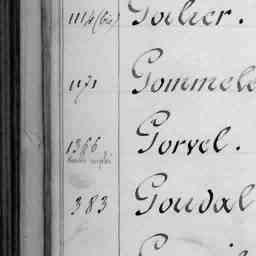 1114(bis) Goilier.
1171 Gommele
1366 Gorvel.
383 Goudal